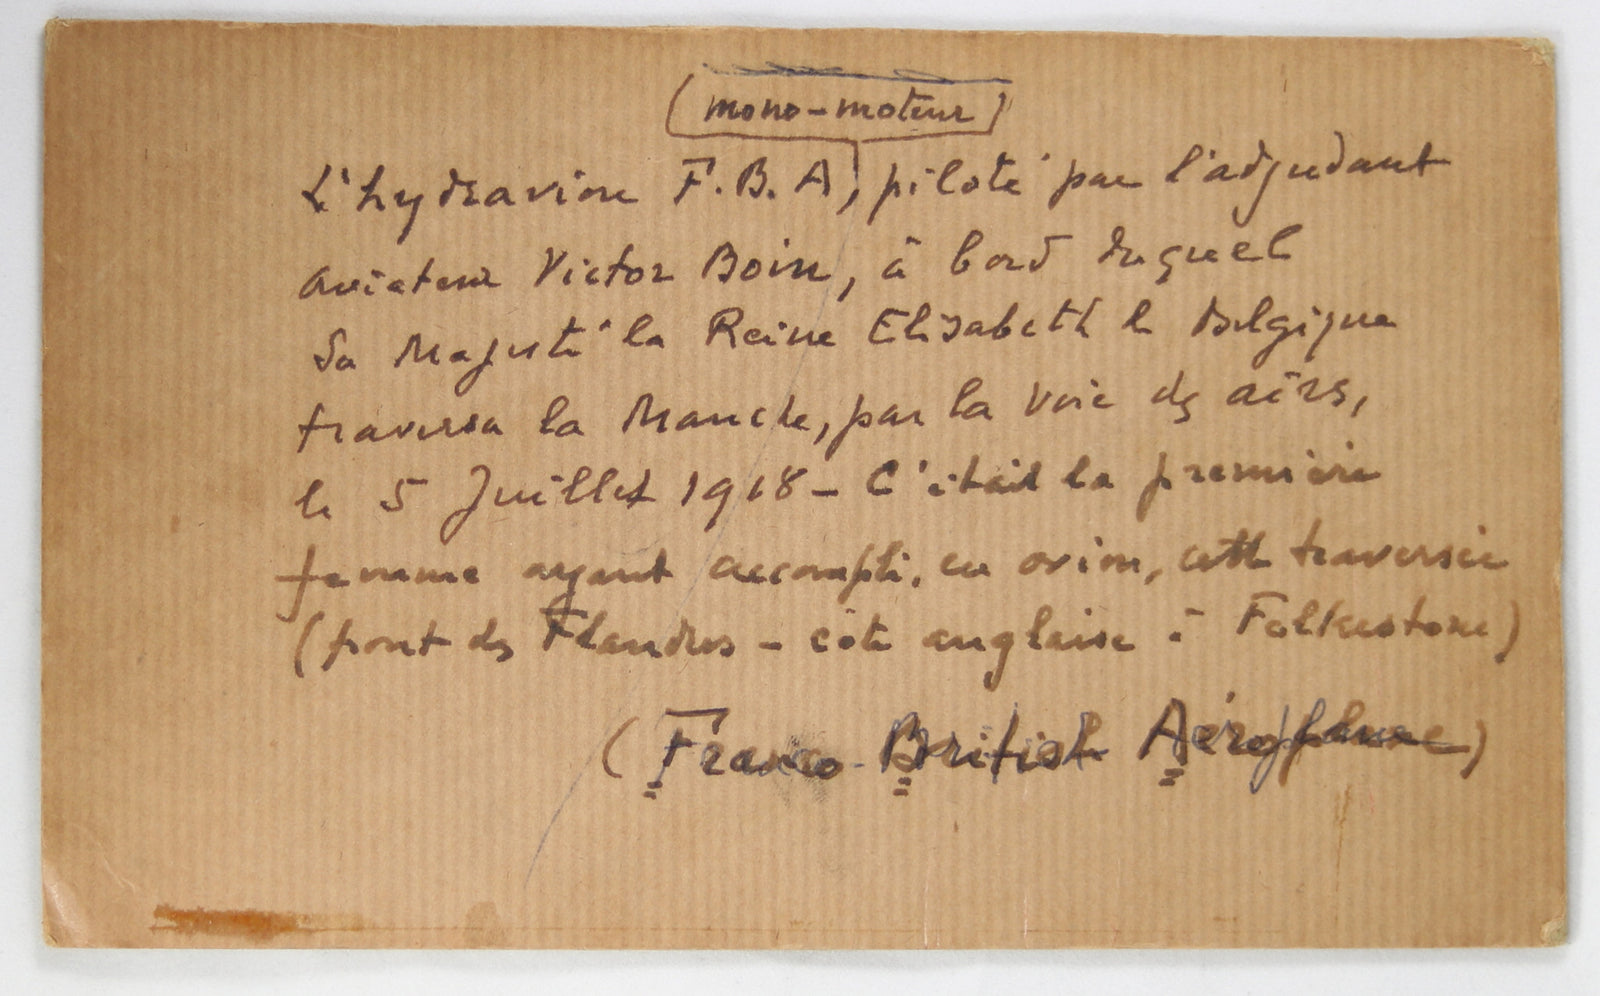 (mono-moteur)
L'hydravion F.B.A, piloté par l'adjudant
aviateur Victor Boin, à bord duquel
Sa Majesté la Reine Elisabeth de Belgique
traversa la Manche, par la voie des airs,
le 5 Juillet 1918 - C'était la première
femme ayant accompli, en avion, cette traversée
(front des Flandres - côte anglaise à Folkestone)
(Franco-British Aéroplane)